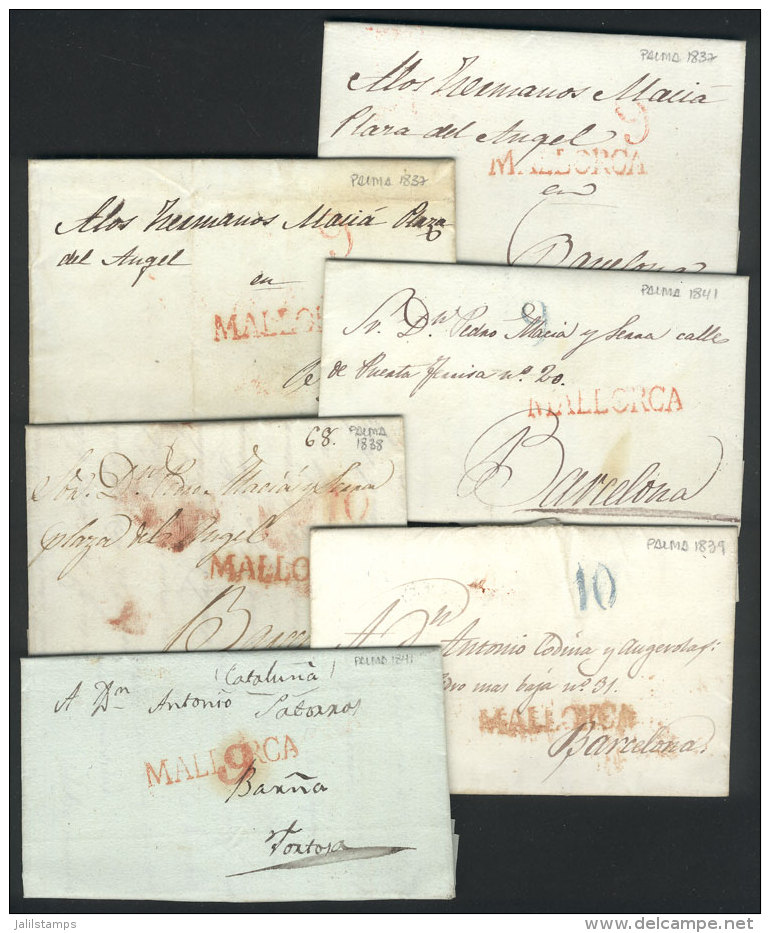 PALMA 1837
A los hermanos Maciá
9
Plaza del Angel
MALLORCA
en
Barcelona
PALMA 1837
A los hermanos Maciá Plaza
9
del Angel
en
MALLOR
PALMA 1841
9
Sr. Dn. Pedro Maciá y Serra calle
de nº 20.
MALLORCA
Barcelona
68.
PALMA
1838
Sor. Dn. Pedro Maciá y Serra
10
plaza del Angel
MALLO
Barc
PALMA 1839
10
A Dn Antonio Codina y
mas baja nº 31.
MALLORCA
Barcelona
PALMA 1841
(Cataluña)
A Dn Antonio Satorras
MALLORCA
9
Barña
Tortosa
jalilstamps
delcampe.net